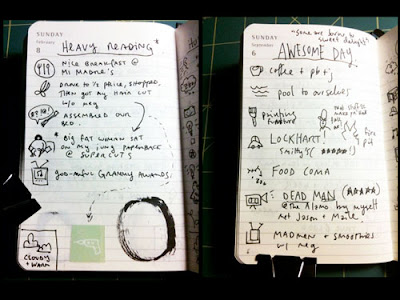 SUNDAY
February
8
HEAVY READING *
NICE BREAKFAST @
MI MADRE'S
DRANK TO 1/2 PRICE, SHOPPED,
THEN GOT MY HAIR CUT
W/O MEG
ASSEMBLED OUR
BED.
* BIG FAT WOMAN SAT
ON MY JUNG PAPERBACK
@ SUPERCUTS
GOD-AWFUL GRAMMY AWARDS.
CLOUDY
+ WARM
SUNDAY
September
6
"some are born to
sweet delight"
AWESOME DAY
coffee + pb+j
pool to ourselves
printing
LOCKHART!
Smitty's!
fire
pit
FOOD COMA
DEAD MAN
@ The Alamo by myself
met Jason +
MADMEN + SMOOTHIES
w/ Meg
6